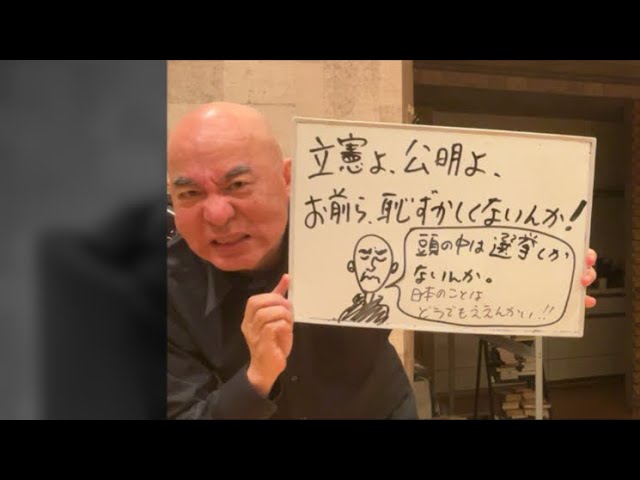 立憲よ、公明よ、
お前ら、恥ずかしくないんか!
頭の中は選挙しか
ないんか。
日本のことは
どうでもええんかい!!